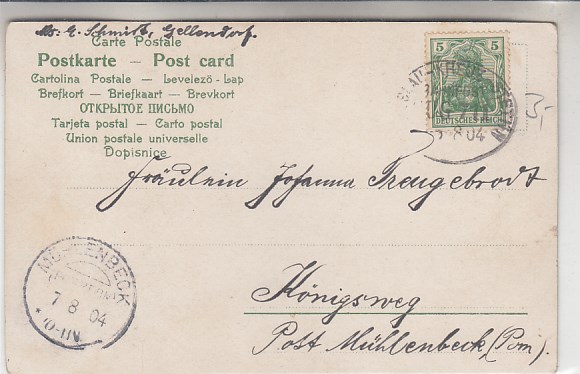 Abs. E. Schmidt, Gellendorf.
Carte Postale
Postkarte – Post card
Cartolina Postale – Levelezö-Lap
Brefkort – Briefkaart – Brevkort
ОТКРЫТОЕ ПИСЬМО
Tarjeta postal – Carto postal
Union postale universelle
Dopisnice
5 5
DEUTSCHES REICH
8 04
Fräulein Johanna Treugebrodt
MÜHLENBECK
7 8 04
10-11N
Königsweg
Post Mühlenbeck (Pom).